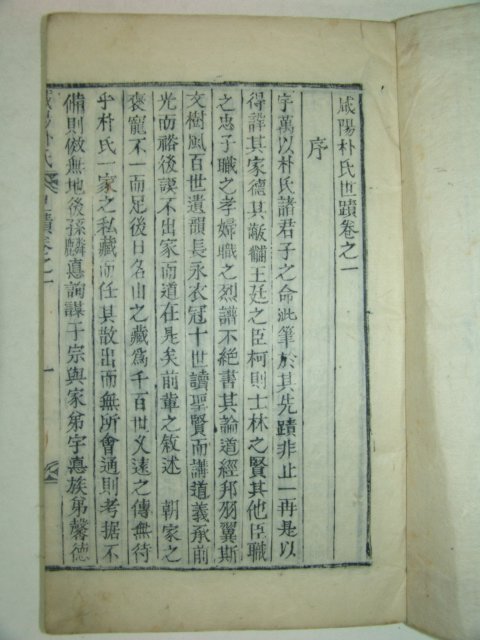 咸陽朴氏世蹟卷之一
序
宇萬以朴氏諸君子之命泚筆於其先蹟非止一再是以
得諱其家德其黻黼王廷之臣柯則士林之賢其他臣職
之忠子職之孝婦職之烈譜不絶書其論道經邦羽翼斯
文樹風百世遺韻長永衣冠十世讀聖賢而講道義承前
光而裕後謨不出家而道在是矣前輩之敘述 朝家之
褒寵不一而足後日名山之藏爲千百世乂遠之傳無待
乎朴氏一家之私藏而任其散出而無所會通則考据不
備則倣無地後孫麟悳詢謀于宗與家弟字悳族弟馨德
咸陽朴氏世蹟卷之一
一